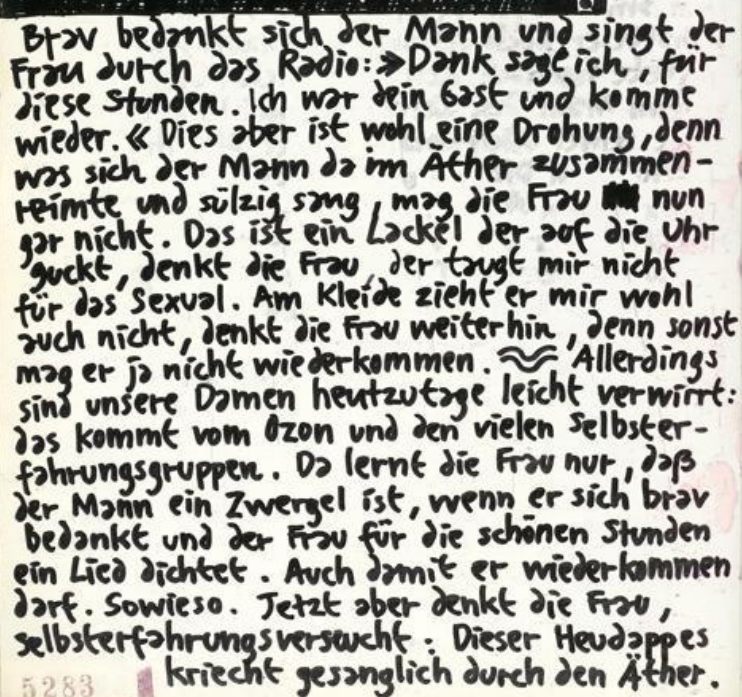 Brav bedankt sich der Mann und singt der
Frau durch das Radio: »Dank sage ich, für
diese Stunden. Ich war dein Gast und komme
wieder.« Dies aber ist wohl eine Drohung, denn
was sich der Mann da im Äther zusammen-
reimte und sülzig sang, mag die Frau nun
gar nicht. Das ist ein Lackel der auf die Uhr
guckt, denkt die Frau, der taugt mir nicht
für das Sexual. Am Kleide zieht er mir wohl
auch nicht, denkt die Frau weiterhin, denn sonst
mag er ja nicht wiederkommen. Allerdings
sind unsere Damen heutzutage leicht verwirrt:
das kommt vom Ozon und den vielen Selbster-
fahrungsgruppen. Da lernt die Frau nur, daß
der Mann ein Zwergel ist, wenn er sich brav
bedankt und der Frau für die schönen Stunden
ein Lied dichtet. Auch damit er wiederkommen
darf. Sowieso. Jetzt aber denkt die Frau,
selbsterfahrungsversucht: Dieser Heudappes
kriecht gesanglich durch den Äther.
5283